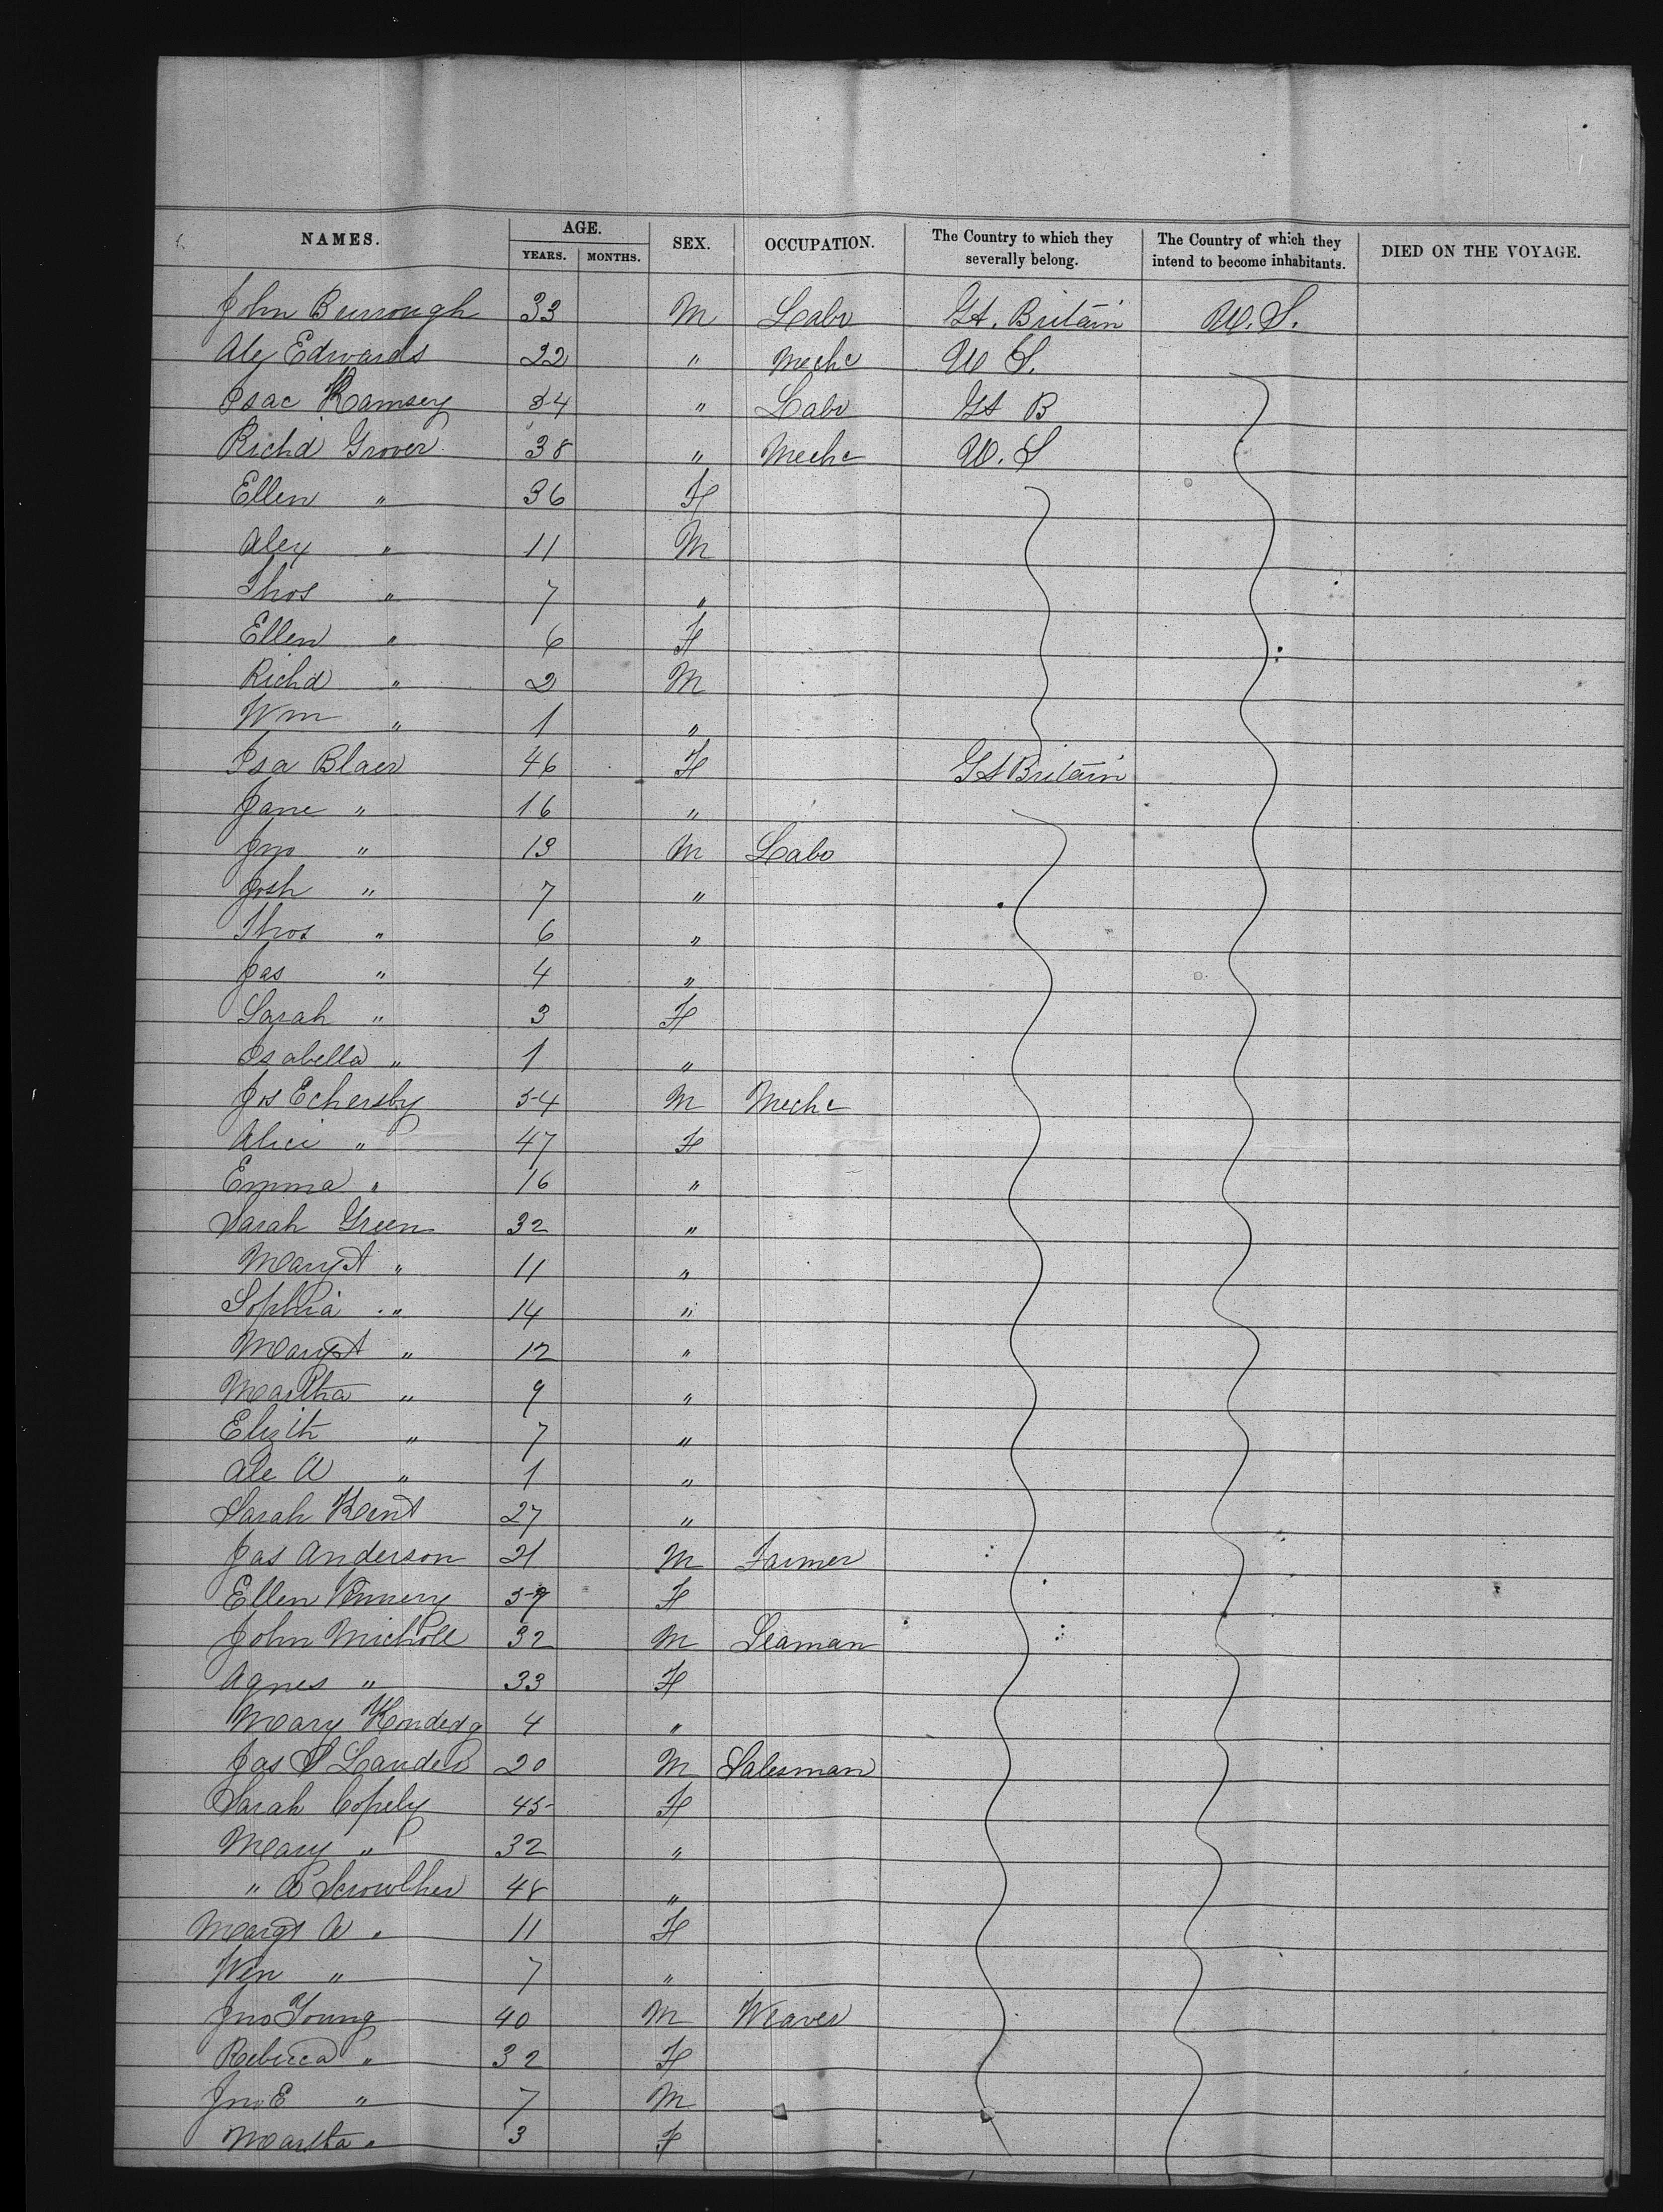 NAMES. AGE. SEX. OCCUPATION. The Country to which they severally belong. The Country of which they intend to become inhabitants. DIED ON THE VOYAGE.
YEARS. MONTHS.
John Burrough 33 M Labr Gt. Britain U.S.
Alex Edwards 22 " Mechc U S.
Isac Ramsey 34 " Labr Gt B
Richd Grover 38 " Mechc U.S
Ellen " 36 F
Alex " 11 M
Thos " 7 "
Ellen " 6 F
Richd " 2 M
Wm " 1 "
Isa Blaer 46 F Gt Britain
Jane " 16 "
Jno " 13 M Labr
Josh " 7 "
Thos " 6 "
Jas " 4 "
Sarah " 3 F
Isabella " 1 "
Jos Echersby 54 M Mechc
Alice " 47 F
Emma " 16 "
Sarah Green 32 "
Mary A " 11 "
Sophia " 14 "
Margt " 12 "
Martha " 9 "
Elizth " 7 "
Ale A " 1 "
Sarah Kent 27 "
Jas Anderson 21 M Farmer
Ellen 59 F
John Micholl 32 M Seaman
Agnes " 33 F
Mary 4 "
Jas S Lander 20 M Salesman
Sarah Copely 45 F
Mary " 32 "
" A Scrowther 48 "
Margt A " 11 F
Wm " 7 "
Jno Young 40 M Weaver
Rebecca " 32 F
Jno E " 7 M
Martha " 3 F